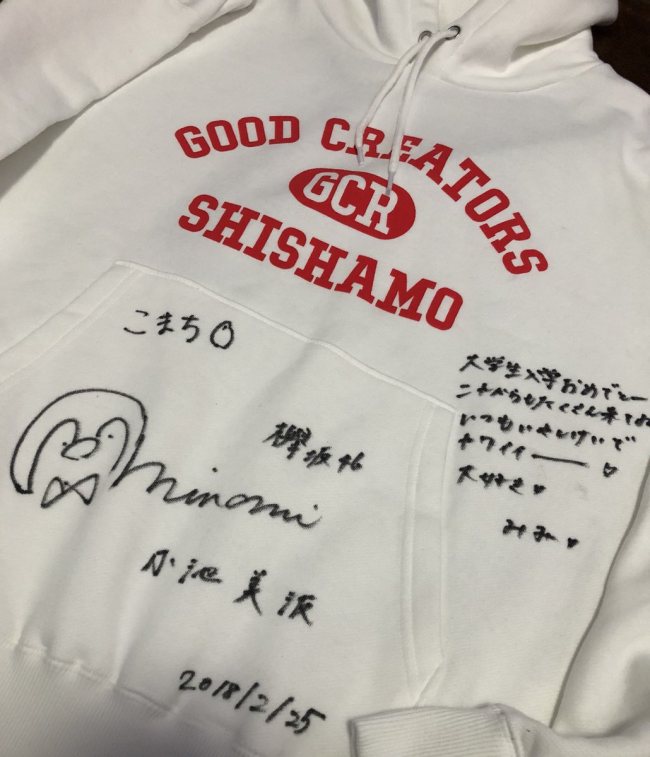 GOOD CREATORS
GCR
SHISHAMO
こまち
欅坂46
minami
小池美波
2018/2/25
大学生入学おめでとー
これからもたくさん来てね
いつもいせいけいで
カワイイー♡
大好き♡
みみ♡